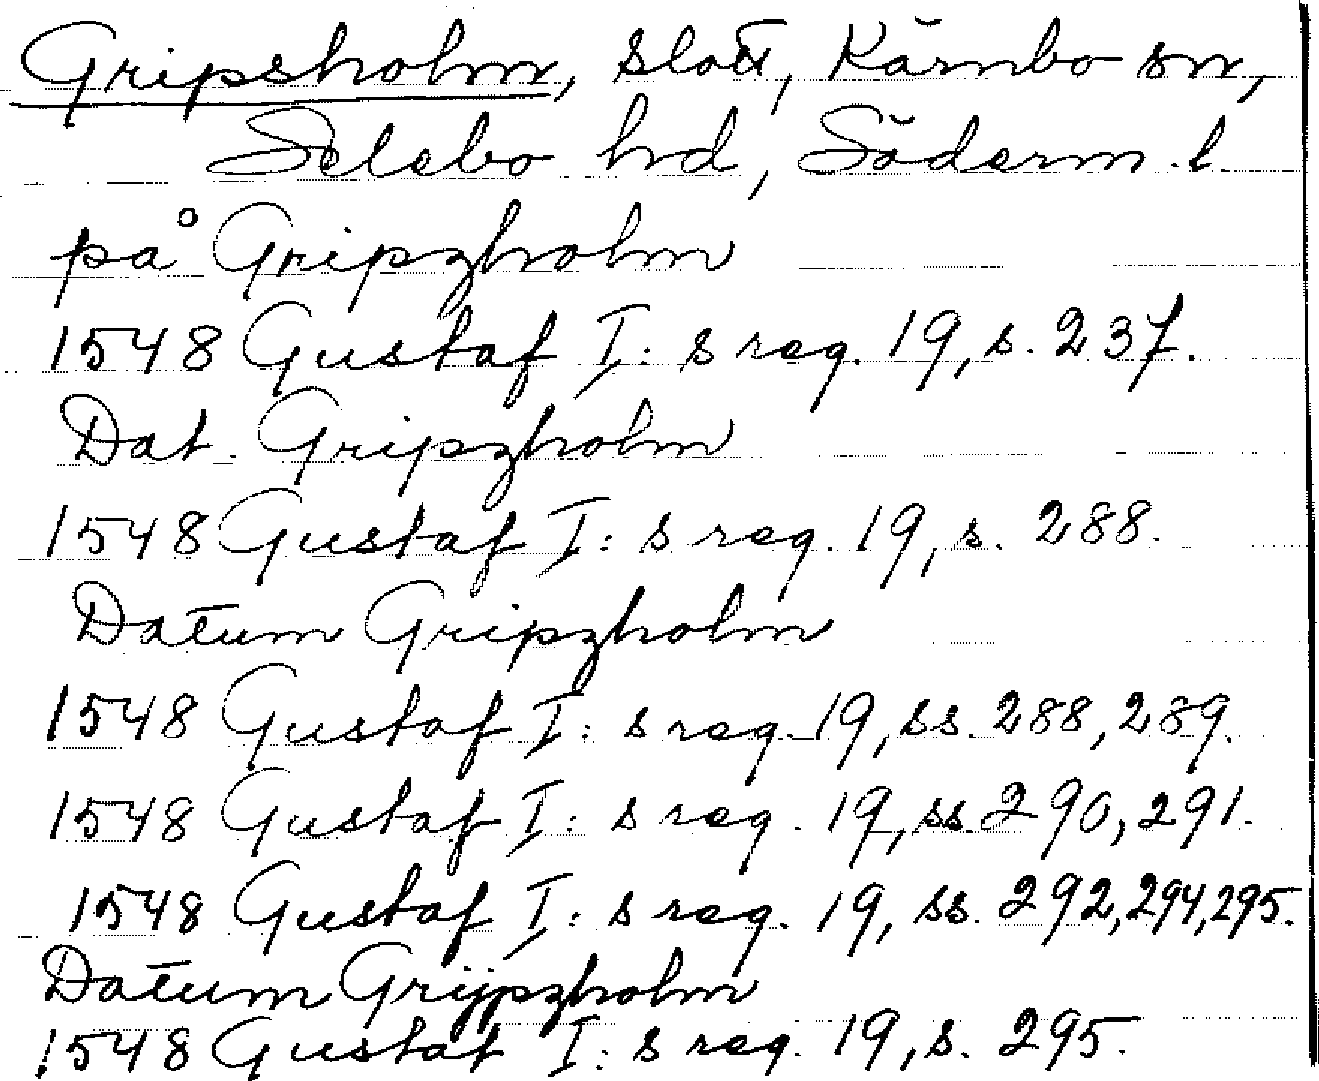 Gripsholm, slott, Kärnbo sn,
Selebo hd, Söderm. l.
på Gripzholm
1548 Gustaf I: s reg. 19, s. 237.
Dat. Gripzholm
1548 Gustaf I: s reg. 19, s. 288.
Datum Gripzholm
1548 Gustaf I: s reg. 19, ss. 288, 289.
1548 Gustaf I: s reg. 19, ss. 290, 291.
1548 Gustaf I: s reg. 19, ss. 292, 294, 295.
Datum Grijpzholm
1548 Gustaf I: s reg. 19, s. 295.